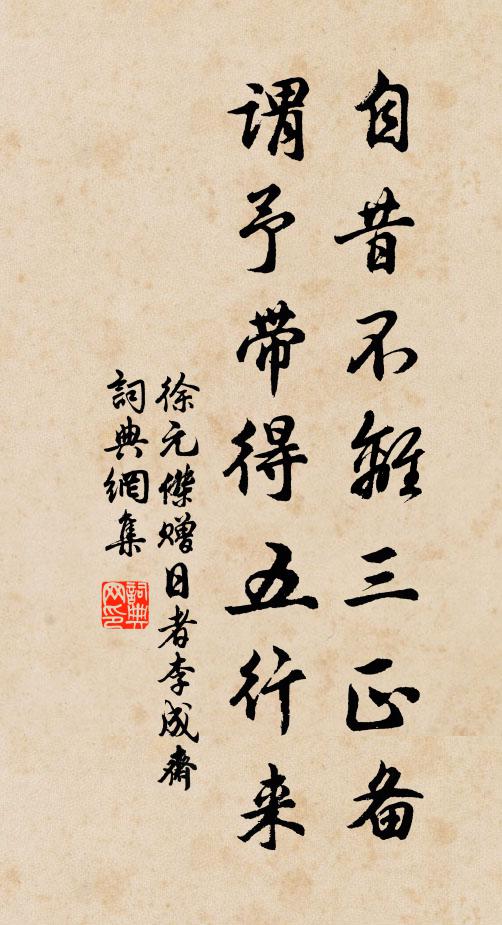 自昔不離三正备
謂予带得五行来
徐元傑贈日者李成齋
詞典網集
詞典网印